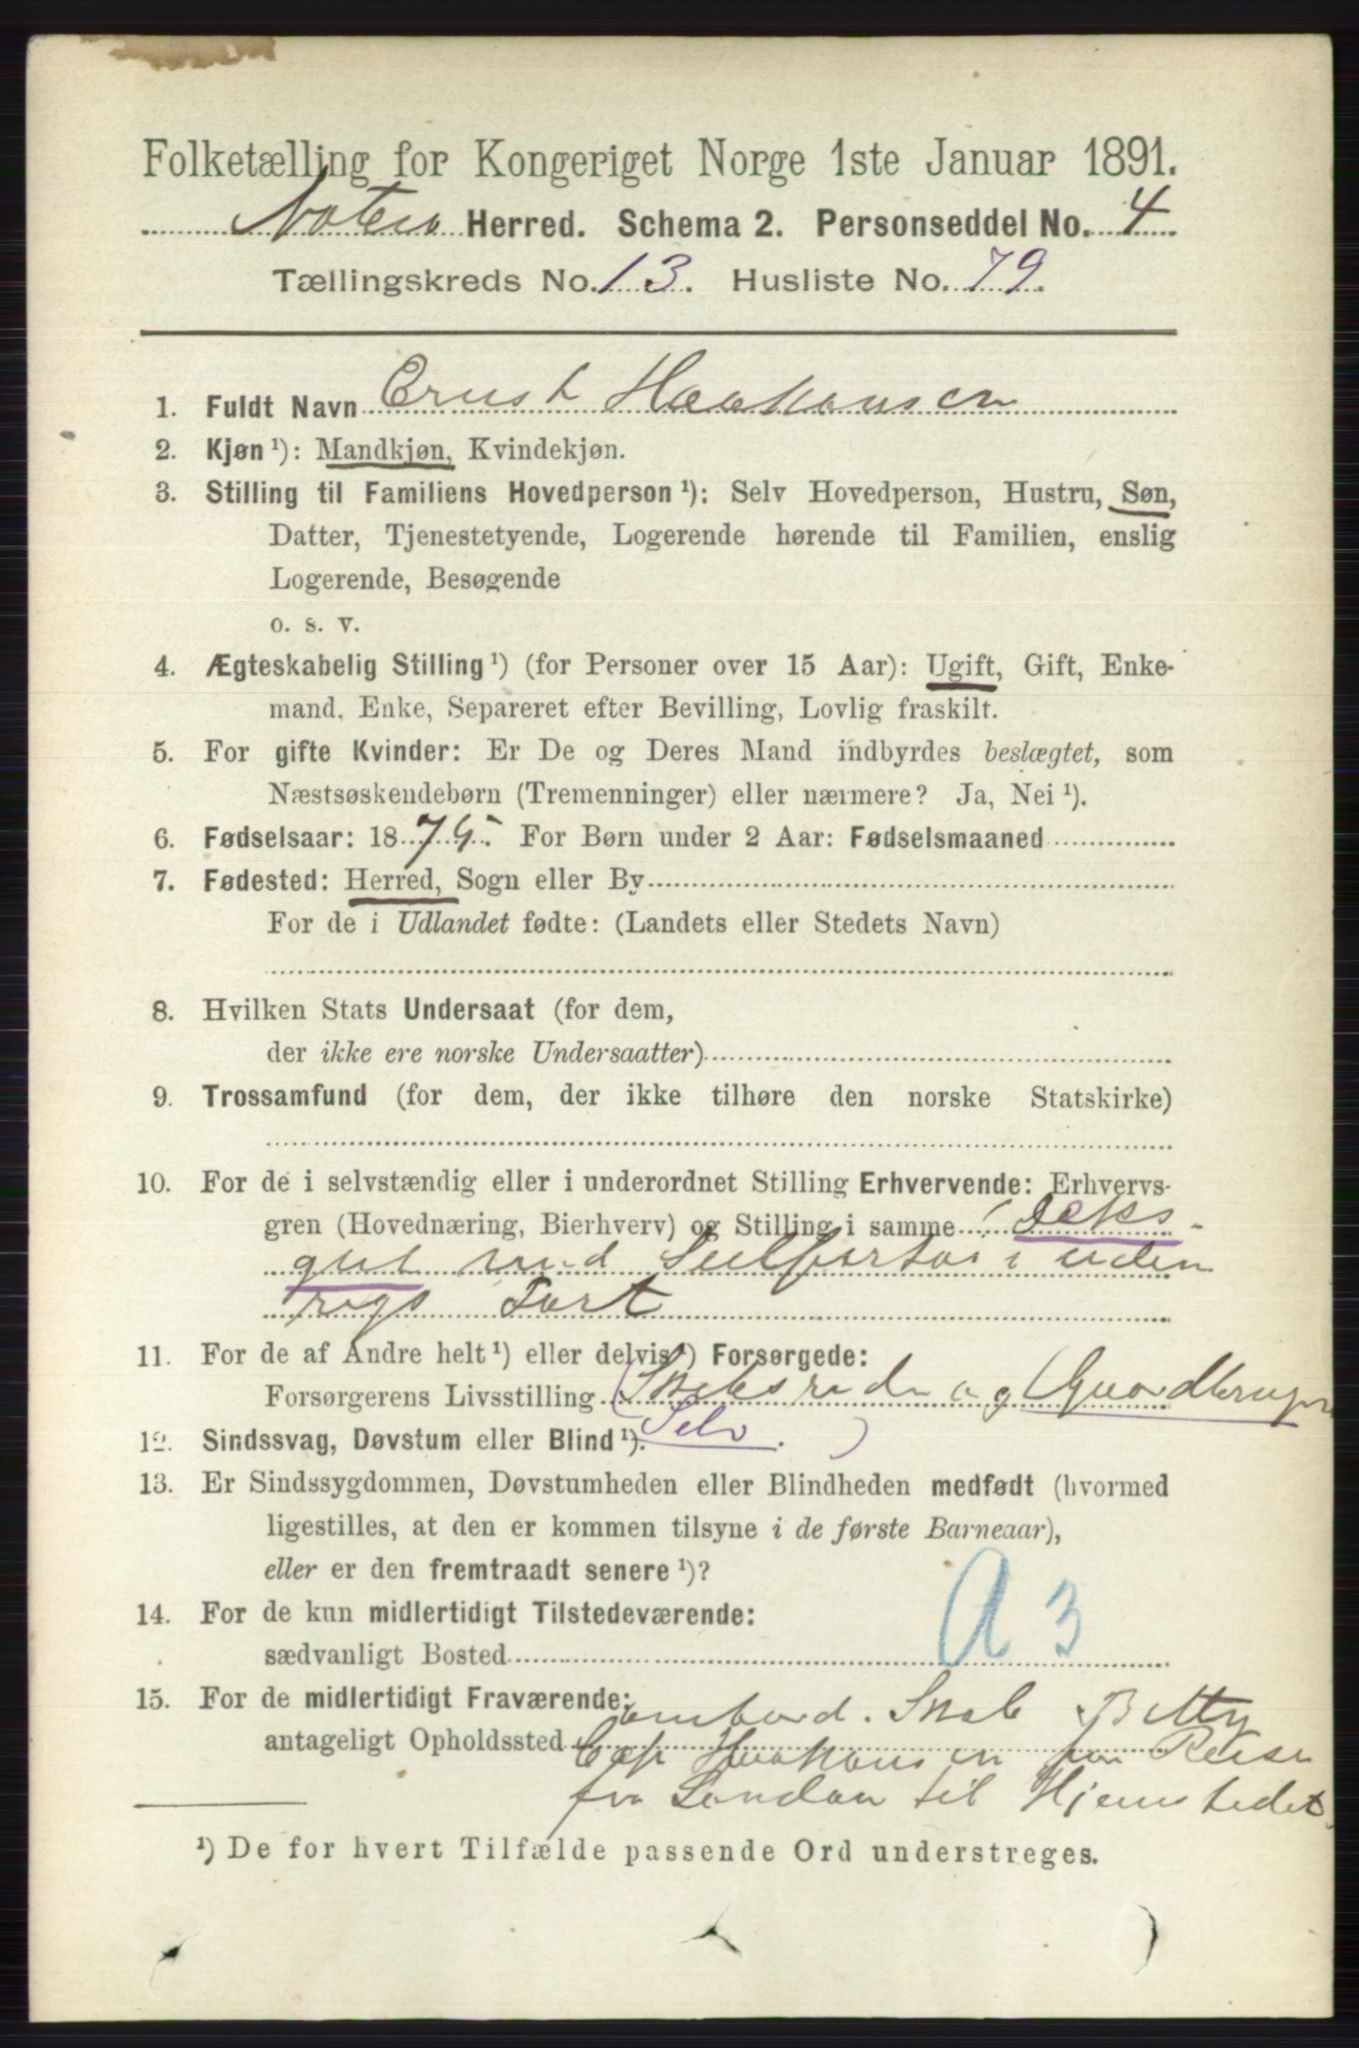 Folketælling for Kongeriget Norge 1ste Januar 1891.
Nøterø Herred. Schema 2. Personseddel No. 4
Tællingskreds No. 13. Husliste No. 79.
1. Fuldt Navn Ernst Haakonsen
2. Kjøn ¹): Mandkjøn, Kvindekjøn.
3. Stilling til Familiens Hovedperson ¹): Selv Hovedperson, Hustru, Søn,
Datter, Tjenestetyende, Logerende hørende til Familien, enslig
Logerende, Besøgende
o. s. v.
4. Ægteskabelig Stilling ¹) (for Personer over 15 Aar): Ugift, Gift, Enke-
mand, Enke, Separeret efter Bevilling, Lovlig fraskilt.
5. For gifte Kvinder: Er De og Deres Mand indbyrdes beslægtet, som
Næstsøskendebørn (Tremenninger) eller nærmere? Ja, Nei ¹).
6. Fødselsaar: 1875. For Børn under 2 Aar: Fødselsmaaned
7. Fødested: Herred, Sogn eller By
For de i Udlandet fødte: (Landets eller Stedets Navn)
8. Hvilken Stats Undersaat (for dem,
der ikke ere norske Undersaatter)
9. Trossamfund (for dem, der ikke tilhøre den norske Statskirke)
10. For de i selvstændig eller i underordnet Stilling Erhvervende: Erhvervs-
gren (Hovednæring, Bierhverv) og Stilling i samme Deks-
gut med Seilfartøi i uden
rigs Fart
11. For de af Andre helt ¹) eller delvis ¹) Forsørgede:
Forsørgerens Livsstilling (Skibsreder og Gaardbruger
12. Sindssvag, Døvstum eller Blind ¹). Selv. )
13. Er Sindssygdommen, Døvstumheden eller Blindheden medfødt (hvormed
ligestilles, at den er kommen tilsyne i de første Barneaar),
eller er den fremtraadt senere ¹)?
14. For de kun midlertidigt Tilstedeværende:
sædvanligt Bosted A 3
15. For de midlertidigt Fraværende: ombord. Skib Betty
antageligt Opholdssted Cap Haakonsen paa Reise
fra London til Hjemstedet
¹) De for hvert Tilfælde passende Ord understreges.